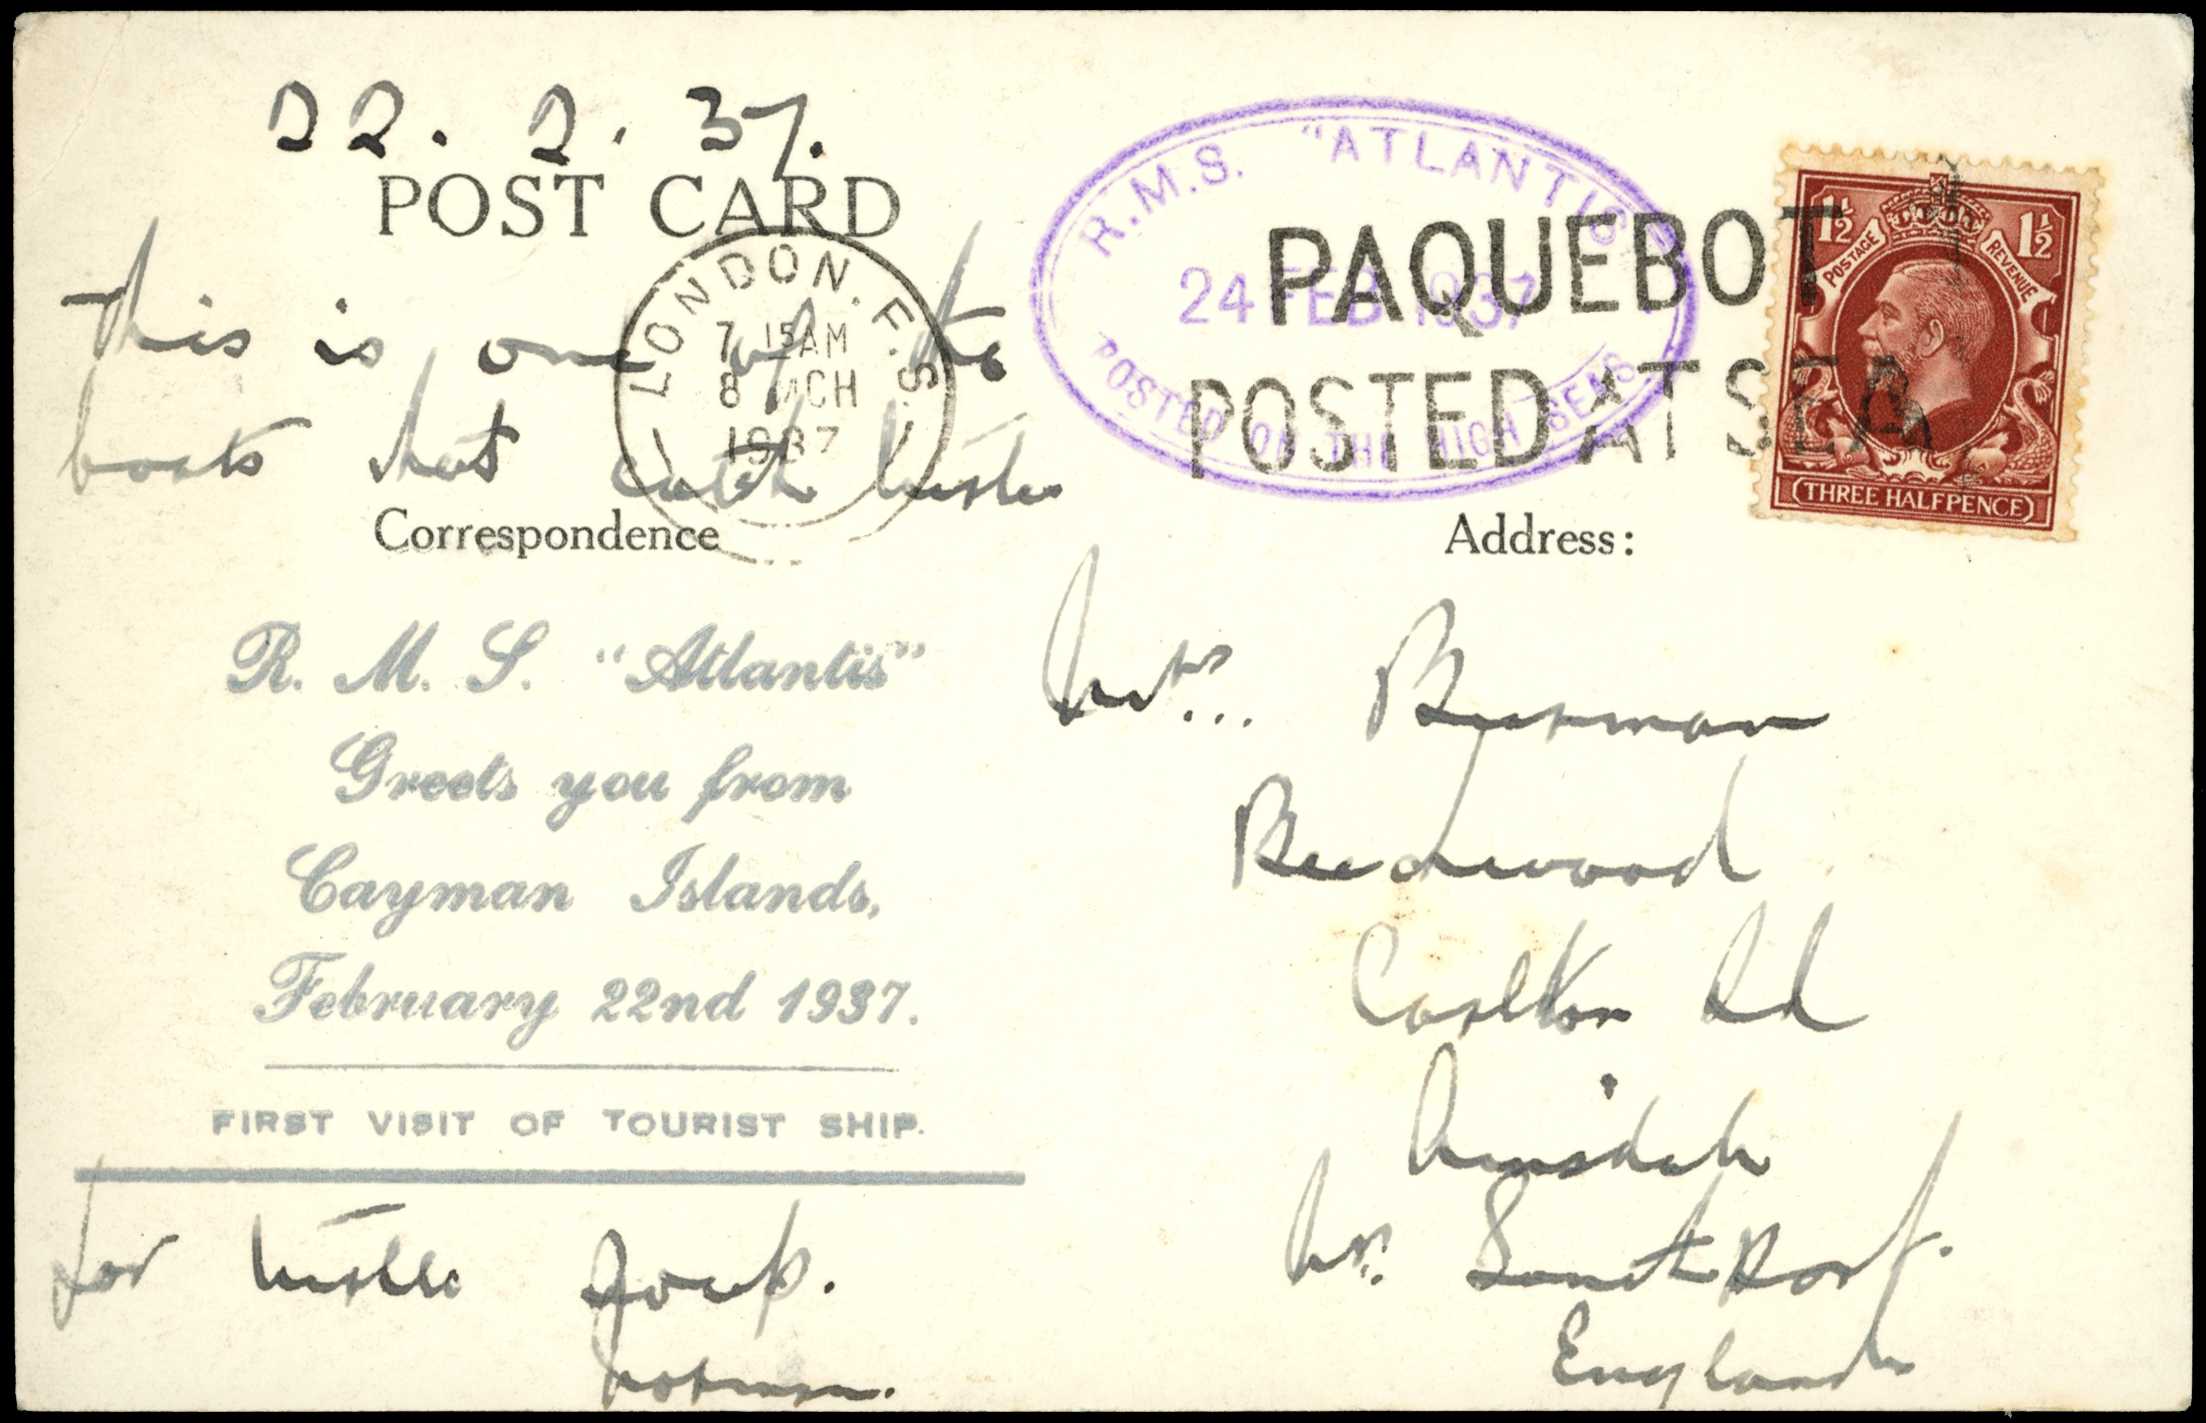 22. 2. 37.
POST CARD
This is one of the
boats that catch turtle
Correspondence
R. M. S. "Atlantis"
Greets you from
Cayman Islands,
February 22nd 1937.
FIRST VISIT OF TOURIST SHIP.
for turtle soup.
Norman.
LONDON. F.S.
7 15AM
8 MCH
1937
R.M.S. "ATLANTIS"
24 FEB 1937
POSTED ON THE HIGH SEAS
PAQUEBOT
POSTED AT SEA
1½ 1½
POSTAGE REVENUE
(THREE HALFPENCE)
Address:
Mrs... Burman
Beechwood
Carlton Rd
Ainsdale
Nr. SouthPort.
England